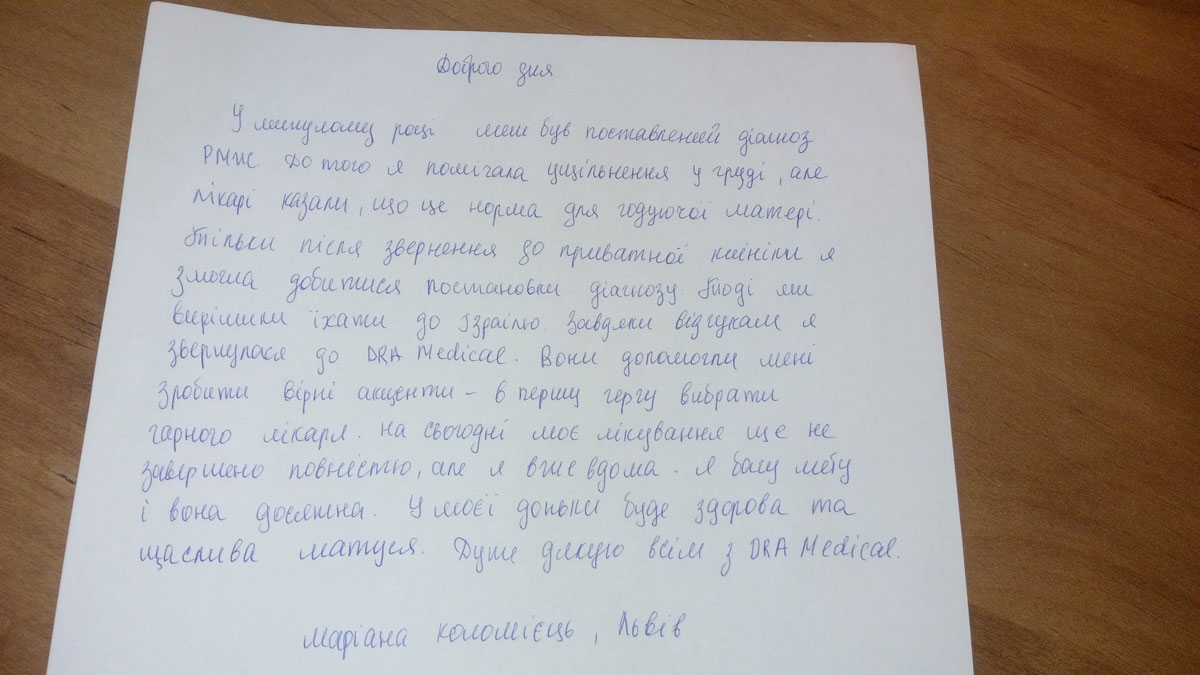 Доброго дня
У минулому році мені був поставлений діагноз
РМЖ До того я помічала ущільнення у груді, але
лікарі казали, що це норма для годуючої матері.
Тільки після звернення до приватної клініки я
змогла добитися постановки діагнозу. Тоді ми
вирішили їхати до Ізраїлю. Завдяки відгукам я
звернулася до DRA Medical. Вони допомогли мені
зробити вірні акценти – в першу чергу вибрати
гарного лікаря. На сьогодні моє лікування ще не
завершено повністю, але я вже вдома. Я бачу мету
і вона досяжна. У моєї доньки буде здорова та
щаслива матуся. Дуже дякую всім з DRA Medical.
Маріана Коломієць, Львів